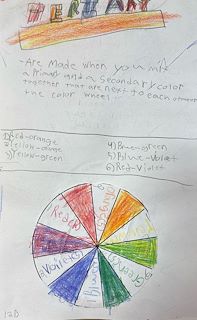 TERTIARY
-Are Made when you mix
a Primary and a Secondary color
together that are next to each other on
the color wheel.
1) Red-orange
2) Yellow-orange
3) Yellow-green
4) Blue-green
5) Blue-Violet
6) Red-Violet
Red
Orange
Yellow
Green
Blue
Violet